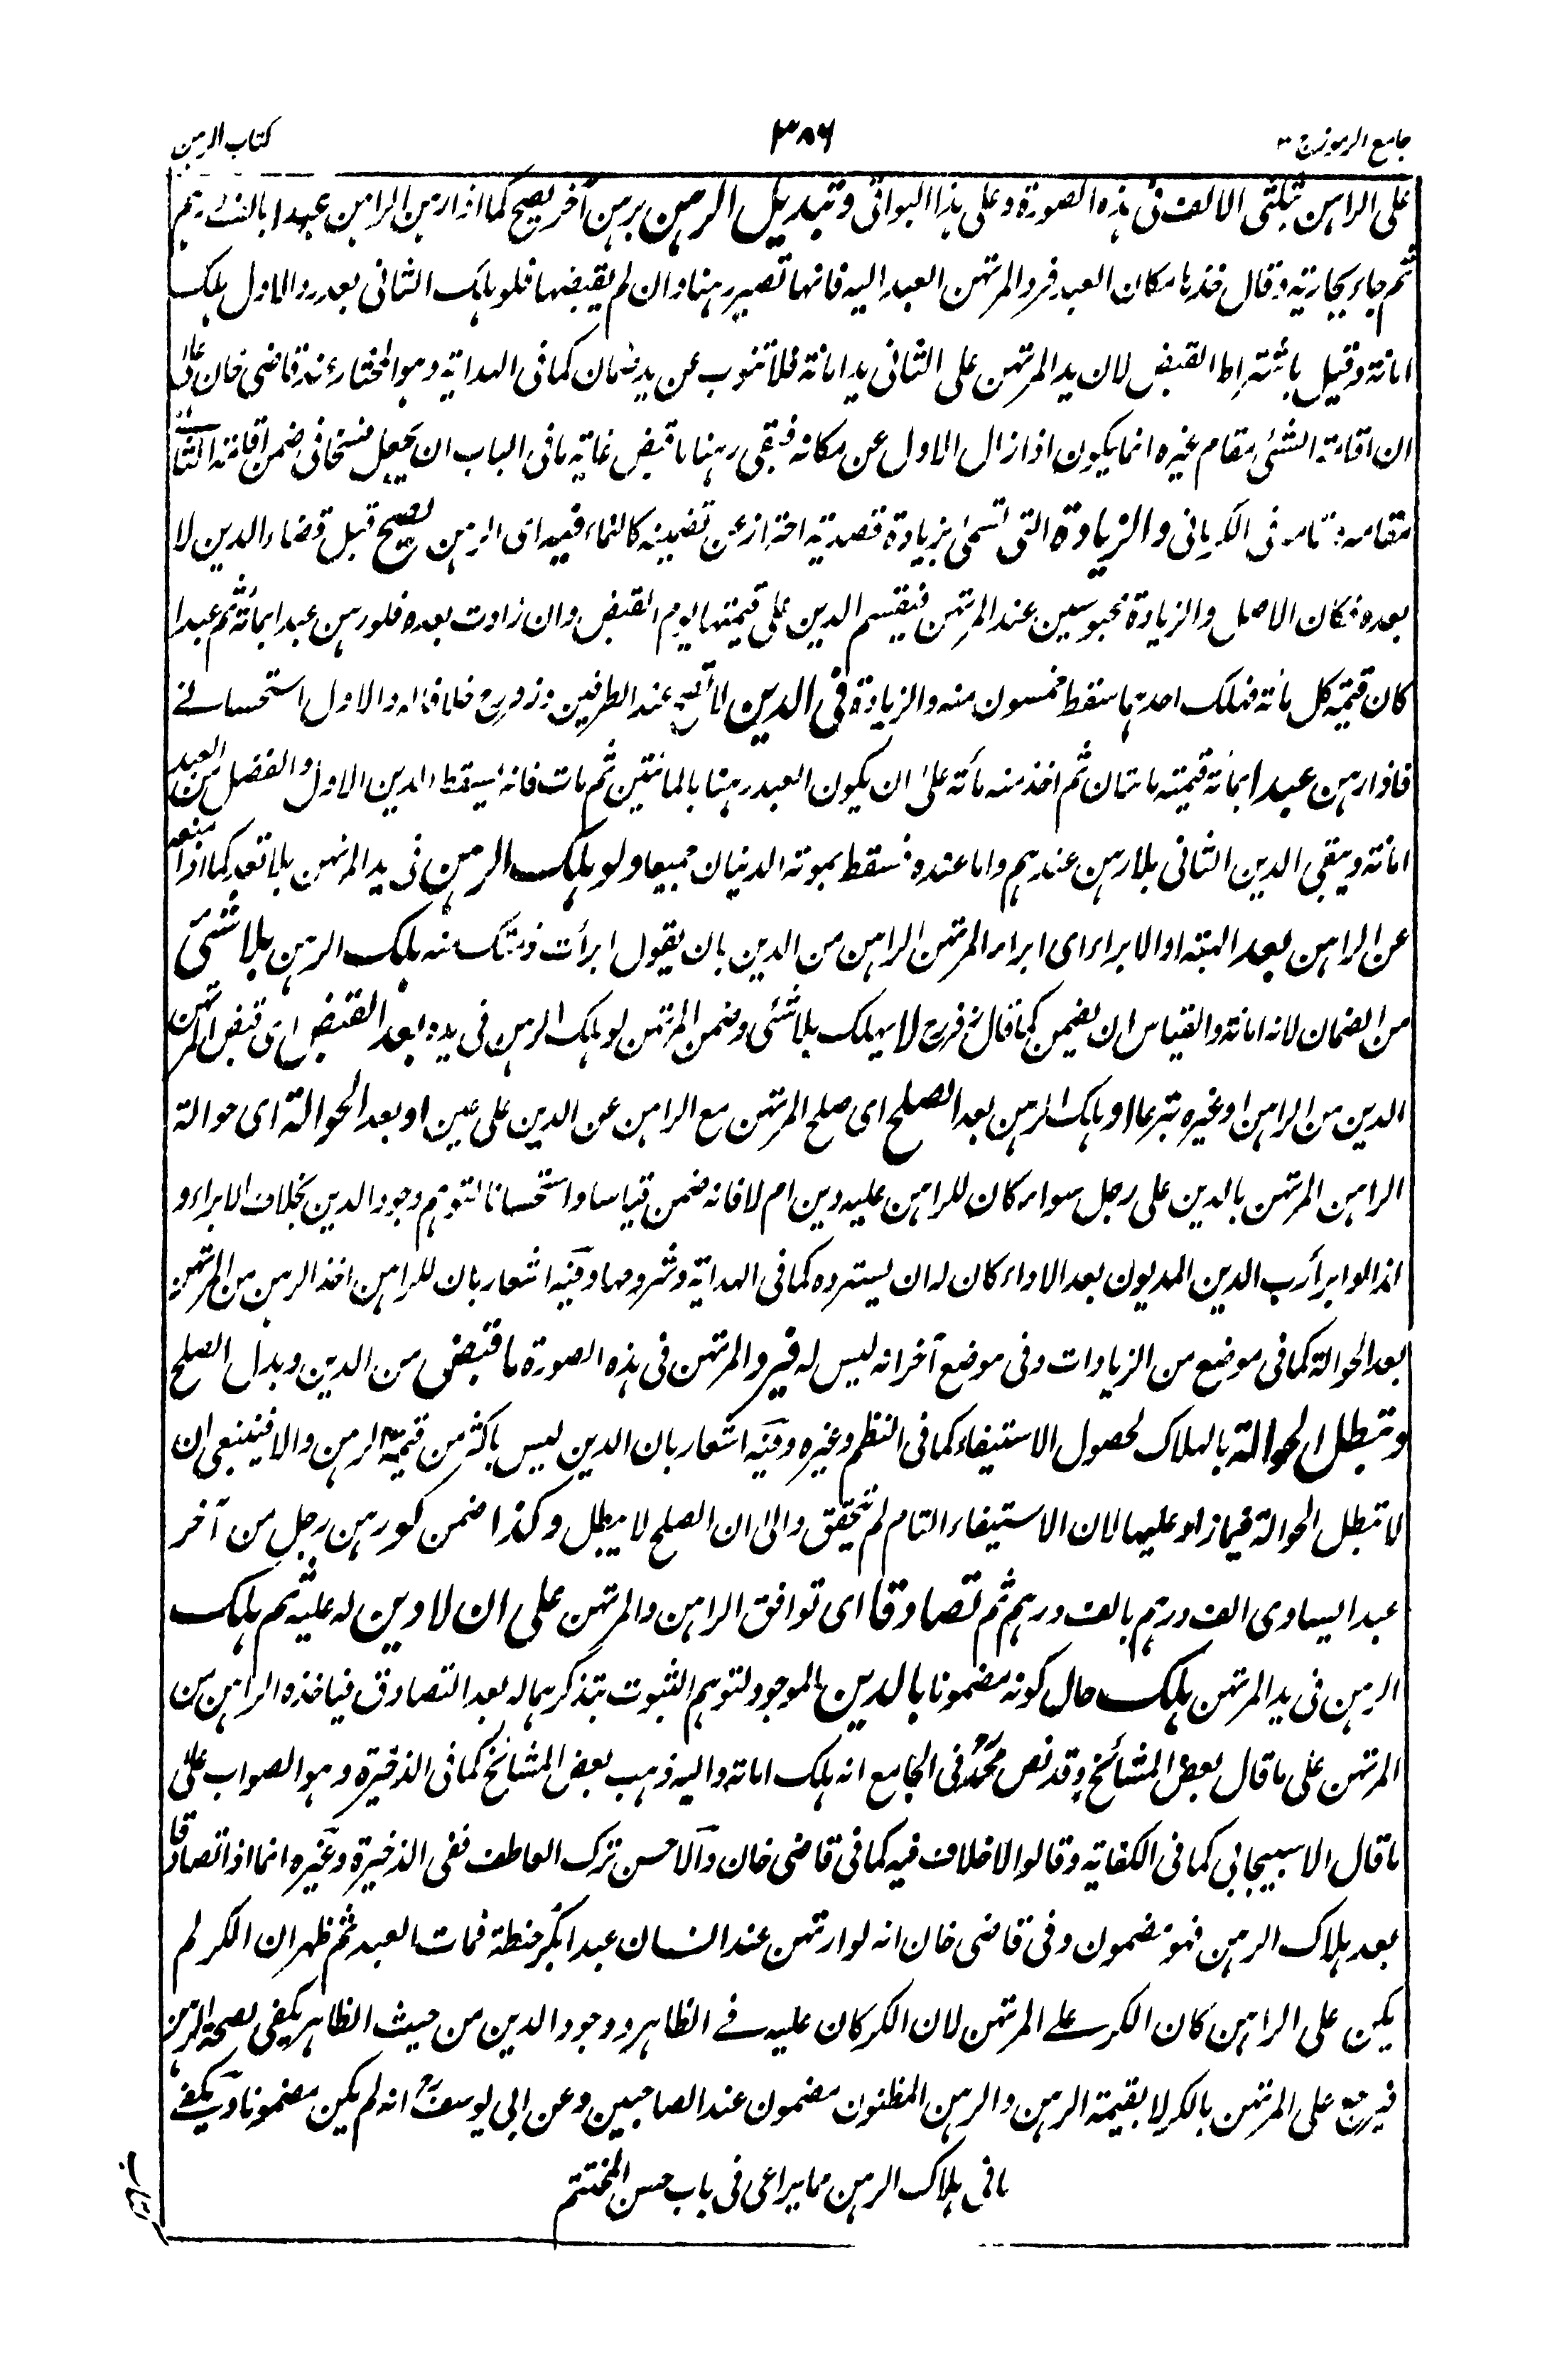 جامع الرموز ج ٣
٣٨٦
كتاب الرهن
على الراهن بثلثى الالف فى هذه الصورة وعلى هذا البواقى وتبديل الرهن برهن آخر يصح كما اذا رهن الراهن عبدا بالف درهم
ثم جاء بجارية وقال خذها مكان العبد فرد المرتهن العبد اليه فانها تصير رهنا وان لم يقبضها فلو هلك الثانى بعد رد الاول هلك
امانة وقيل باشتراط القبض لان يد المرتهن على الثانى يد امانة فلا تنوب عن يد ضمان كما فى الهداية وهو المختار عند قاضى خان على
ان اقامة الشئ مقام غيره انما يكون اذا زال الاول عن مكانه فبقى رهنا ما قبض غاية ما فى الباب ان يجعل فسخا فى ضمن اقامة الثانى
مقامه وتمامه فى الكرمانى والزيادة التى تسمى بزيادة قصدية احتراز عن تضمينه كالنماء فيه اى الرهن يصح قبل قضاء الدين لا
بعده فكان الاصل والزيادة محبوسين عند المرتهن فيقسم الدين على قيمتها يوم القبض وان زادت بعده فلو رهن عبدا بمائة ثم عبدا
كان قيمة كل مائة فهلك احدهما سقط خمسون منه والزيادة فى الدين لا تصح عند الطرفين وزفر رح خلافا له والاول استحسانے
فاذا رهن عبدا بمائة قيمته مائتان ثم اخذ منه مائة على ان يكون العبد رهنا بالمائتين ثم مات فانه يسقط الدين الاول والفضل من العبد
امانة ويبقى الدين الثانى بلا رهن عندهم واما عنده فسقط بموته الدينان جميعا ولو هلك الرهن فى يد المرتهن بلا تعد كما اذا منعه
عن الراهن بعد الهبة او الابراء اى ابراء المرتهن الراهن من الدين بان يقول ابرأت ذمتك منه هلك الرهن بلا شئ
من الضمان لانه امانة والقياس ان يضمن كما قال زفر رح لا يهلك بلا شئ وضمن المرتهن لو هلك الرهن فى يده بعد القبض اى قبض المرتهن
الدين من الراهن او غيره تبرعا او هلك الرهن بعد الصلح اى صلح المرتهن مع الراهن عن الدين على عين او بعد الحوالة اى حوالة
الراهن المرتهن بالدين على رجل سواء كان للراهن عليه دين ام لا فانه ضمن قياسا واستحسانا لتوهم وجود الدين بخلاف الابراء و
لذا لو ابرأ رب الدين المديون بعد الاداء كان له ان يسترده كما فى الهداية وشروحها وفيه اشعار بان للراهن اخذ الرهن من المرتهن
بعد الحوالة كما فى موضع من الزيادات وفى موضع آخر انه ليس له فيرد المرتهن فى هذه الصورة ما قبض من الدين وبدل الصلح
وتبطل الحوالة بالهلاك لحصول الاستيفاء كما فى النظم وغيره وفيه اشعار بان الدين ليس باكثر من قيمة الرهن والا فينبغى ان
لا تبطل الحوالة فيما زاد عليها لان الاستيفاء التام لم يتحقق والى ان الصلح لا يبطل وكذا ضمن لو رهن رجل من آخر
عبدا يساوى الف درهم بالف درهم ثم تصادقا اى توافق الراهن والمرتهن على ان لا دين له عليه ثم هلك
الرهن فى يد المرتهن هلك حال كونه مضمونا بالدين الموجود لتوهم الثبوت بتذكرهما له بعد التصادق فياخذه الراهن من
المرتهن على ما قال بعض المشائخ وقد نص محمد رح فى الجامع انه هلك امانة واليه ذهب بعض المشائخ كما فى الذخيرة وهو الصواب على
ما قال الاسبيجابى كما فى الكفاية وقالوا لا خلاف فيه كما فى قاضى خان والاحسن ترك العاطف ففى الذخيرة وغيره انما اذا تصادقا
بعد هلاك الرهن فهو مضمون وفى قاضى خان انه لو ارتهن عند انسان عبدا بكر حنطة فمات العبد ثم ظهر ان الكر لم
يكن على الراهن كان الكر على المرتهن لان الكر كان عليه فے الظاهر ووجود الدين من حيث الظاهر يكفى لصحة الرهن
فيرجع على المرتهن بالكر لا بقيمة الرهن والرهن المظنون مضمون عند الصاحبين وعن ابى يوسف رح انه لم يكن مضمونا ويكفے
ما فى هلاك الرهن مما يراعى فى باب حسن المختتم